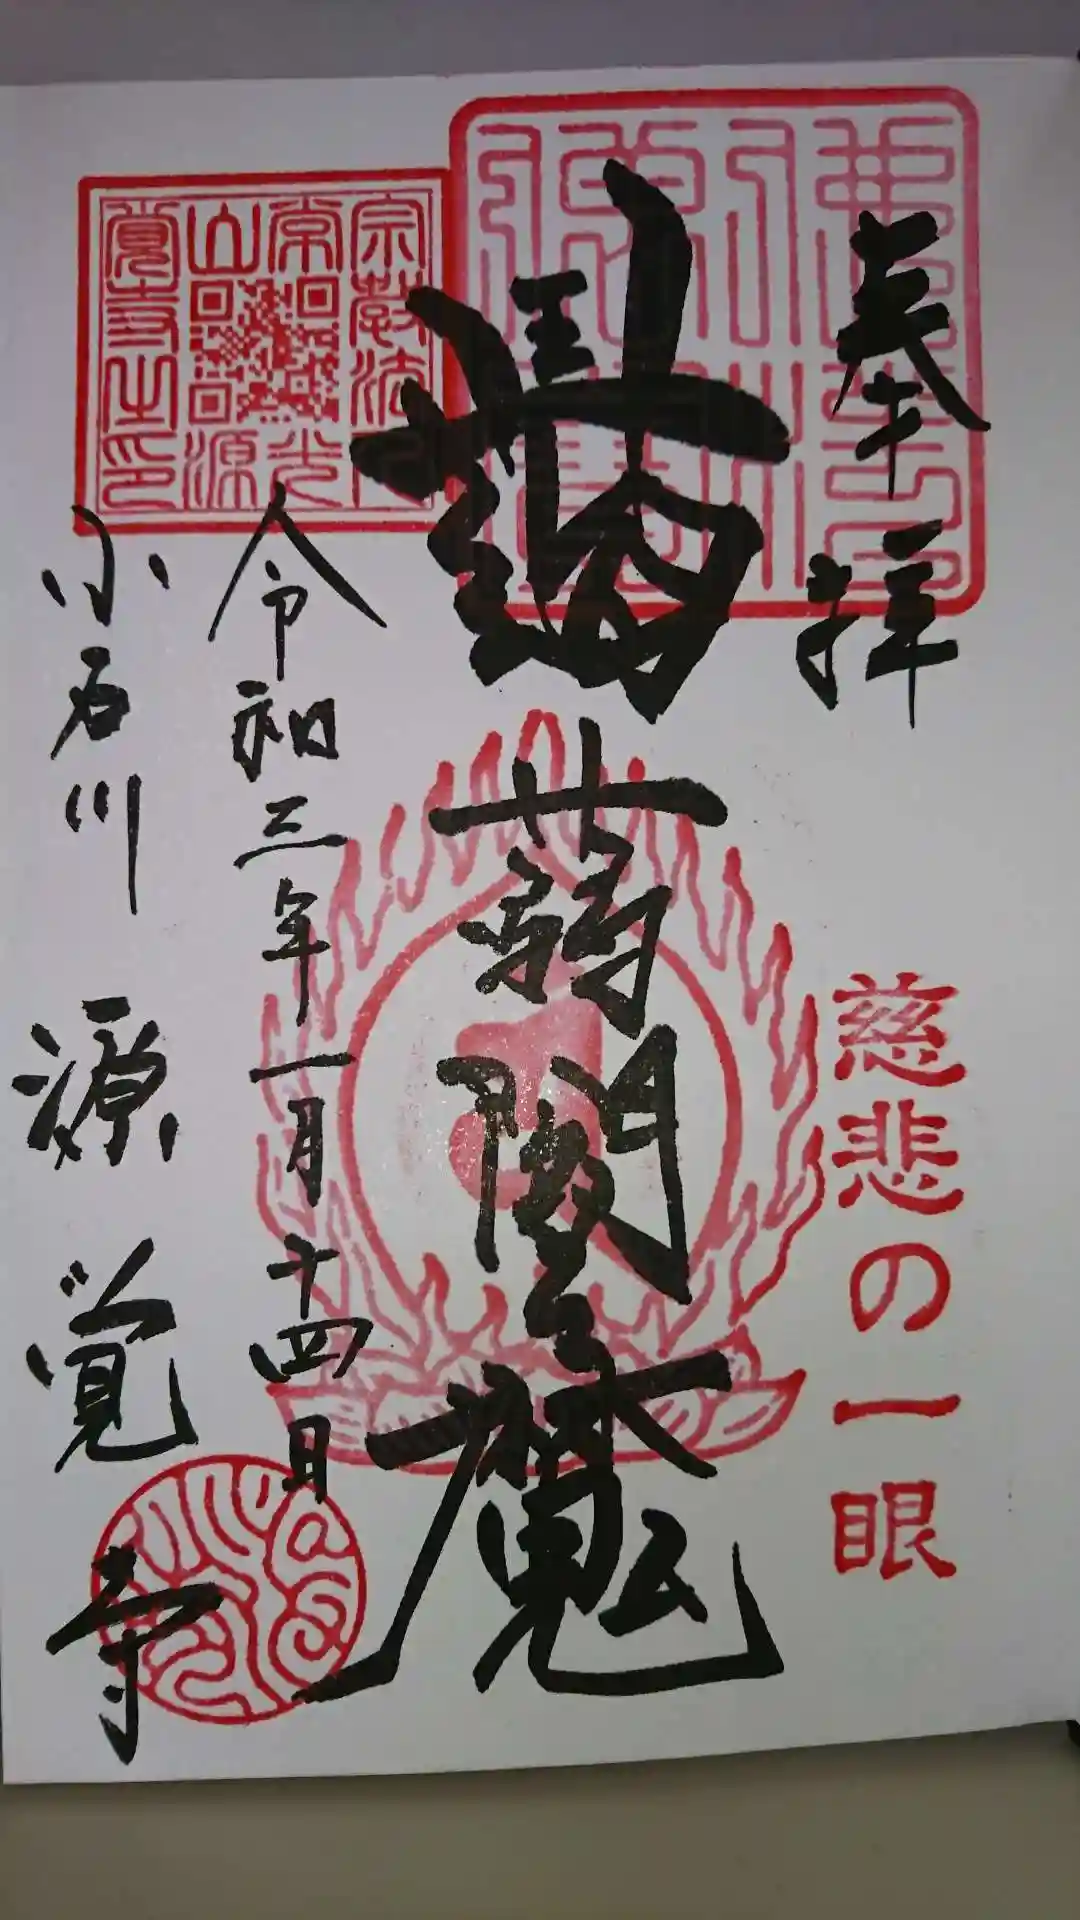 奉拝
慈悲の一眼
蒟蒻閻魔
宗教法人
常光
山源
覺寺之印
令和三年一月十四日
小石川 源覚寺